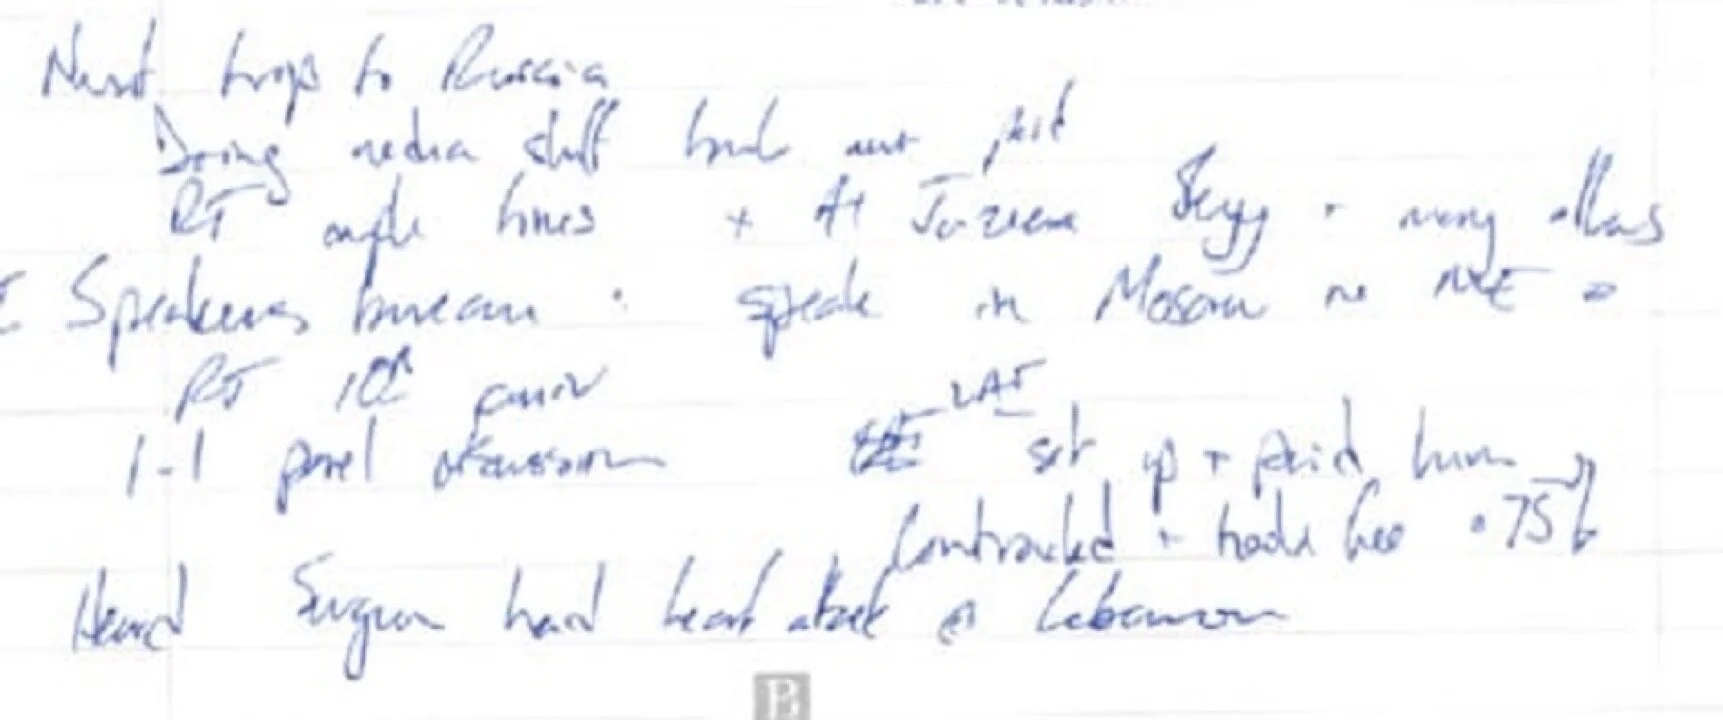 trips to Russia
Doing media stuff but not paid
RT couple times + Al Jazeera Skyy + many others
Speakers bureau : speak in Moscow re ME
RT 10th anniv
1-1 panel discussion LAI set up + paid him
Contracted + took fee 75
Heard Surgeon had heart attack in Lebanon